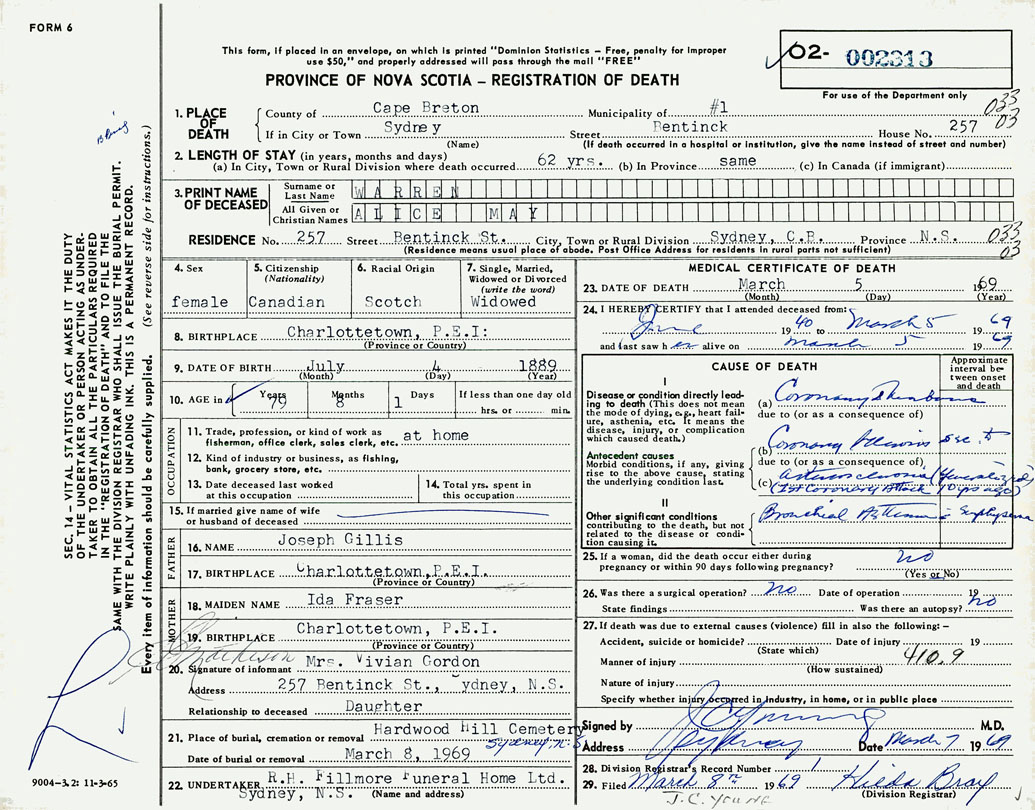 FORM 6
This form, if placed in an envelope, on which is printed "Dominion Statistics – Free, penalty for improper
use $50," and properly addressed will pass through the mail "FREE"
PROVINCE OF NOVA SCOTIA – REGISTRATION OF DEATH
02- 002313
For use of the Department only
1. PLACE OF DEATH
County of Cape Breton Municipality of #1 033
If in City or Town Sydney Street Bentinck House No. 257 03
(Name) (If death occurred in a hospital or institution, give the name instead of street and number)
2. LENGTH OF STAY (in years, months and days)
(a) In City, Town or Rural Division where death occurred 62 yrs. (b) In Province same (c) In Canada (if immigrant)
3. PRINT NAME OF DECEASED
Surname or Last Name WARREN
All Given or Christian Names ALICE MAY
RESIDENCE No. 257 Street Bentinck St. City, Town or Rural Division Sydney, C.B. Province N.S. 033
(Residence means usual place of abode. Post Office Address for residents in rural parts not sufficient) 03
4. Sex
female
5. Citizenship
(Nationality)
Canadian
6. Racial Origin
Scotch
7. Single, Married,
Widowed or Divorced
(write the word)
Widowed
8. BIRTHPLACE Charlottetown, P.E.I:
(Province or Country)
9. DATE OF BIRTH July 4 1889
(Month) (Day) (Year)
10. AGE in Years 79 Months 8 Days 1 If less than one day old
hrs. or min.
OCCUPATION
11. Trade, profession, or kind of work as
fisherman, office clerk, sales clerk, etc. at home
12. Kind of industry or business, as fishing,
bank, grocery store, etc.
13. Date deceased last worked
at this occupation
14. Total yrs. spent in
this occupation
15. If married give name of wife
or husband of deceased
FATHER
16. NAME Joseph Gillis
17. BIRTHPLACE Charlottetown,P.E.I.
(Province or Country)
MOTHER
18. MAIDEN NAME Ida Fraser
19. BIRTHPLACE Charlottetown, P.E.I.
(Province or Country)
20. Signature of informant Mrs. Vivian Gordon
Address 257 Bentinck St., Sydney, N.S.
Relationship to deceased Daughter
21. Place of burial, cremation or removal Hardwood Hill Cemetery
Sydney, N.S.
Date of burial or removal March 8, 1969
22. UNDERTAKER R.H. Fillmore Funeral Home Ltd.
Sydney, N.S. (Name and address)
MEDICAL CERTIFICATE OF DEATH
23. DATE OF DEATH March 5 1969
(Month) (Day) (Year)
24. I HEREBY CERTIFY that I attended deceased from:
June 1940 to March 5 1969
and last saw her alive on March 5 1969
CAUSE OF DEATH
Approximate
interval be-
tween onset
and death
I
Disease or condition directly lead-
ing to death (This does not mean
the mode of dying, e.g., heart fail-
ure, asthenia, etc. It means the
disease, injury, or complication
which caused death.)
(a) Coronary Thrombosis
due to (or as a consequence of)
Antecedent causes
Morbid conditions, if any, giving
rise to the above cause, stating
the underlying condition last.
(b) Coronary sec. to
due to (or as a consequence of)
(c) Arteriosclerosis (Generalized)
(1st Coronary Attack yrs ago)
II
Other significant conditions
contributing to the death, but not
related to the disease or condi-
tion causing it.
Bronchial Asthma Emphysema
25. If a woman, did the death occur either during
pregnancy or within 90 days following pregnancy? no
(Yes or No)
26. Was there a surgical operation? no Date of operation 19
State findings Was there an autopsy? no
27. If death was due to external causes (violence) fill in also the following: –
Accident, suicide or homicide? Date of injury 19
(State which)
Manner of injury 410.9
(How sustained)
Nature of injury
Specify whether injury occurred in industry, in home, or in public place
Signed by J C Young M.D.
Address Sydney Date March 7 1969
28. Division Registrar's Record Number
29. Filed March 8th 1969 Hilda Bray
(Division Registrar)
J.C. YOUNG
SEC. 14 – VITAL STATISTICS ACT MAKES IT THE DUTY
OF THE UNDERTAKER OR PERSON ACTING AS UNDER-
TAKER TO OBTAIN ALL THE PARTICULARS REQUIRED
IN THE "REGISTRATION OF DEATH" AND TO FILE THE
SAME WITH THE DIVISION REGISTRAR WHO SHALL ISSUE THE BURIAL PERMIT.
WRITE PLAINLY WITH UNFADING INK. THIS IS A PERMANENT RECORD.
Every item of information should be carefully supplied. (See reverse side for instructions.)
9004–3.2: 11-3-65